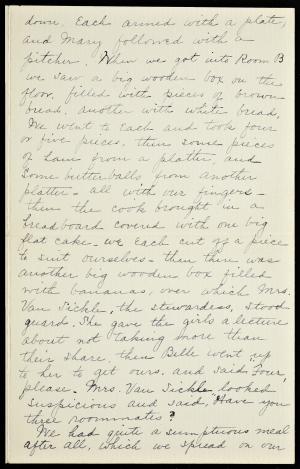 down. Each armed with a plate,
and Mary followed with a
pitcher. When we got into Room B
we saw a big wooden box on the
floor, filled with pieces of brown
bread, another with white bread,
We went to each and took four
or five pieces, then some pieces
of ham from a platter, and
some butter balls from another
platter - all with our fingers -
then the cook brought in a
breadboard covered with one big
flat cake - we each cut off a piece
to suit ourselves - then there was
another big wooden box filled
with bananas, over which Mrs.
Van Sickle, the stewardess, stood
guard. She gave the girls a lecture
about not taking more than
their share, then Belle went up
to her to get ours, and said "Four,
please." Mrs. Van Sickle looked
suspicious and said, "Have you
three roommates?"
We had quite a sumptuous meal
after all, which we spread on our